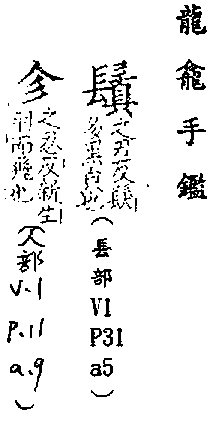 龍龕手鑑
鬒之忍反鬒
髮黑皃也
(長部
V1
P31
a5
)
㐱之忍反新生
羽而飛也
(人部
V.1
P.11
a.9
)